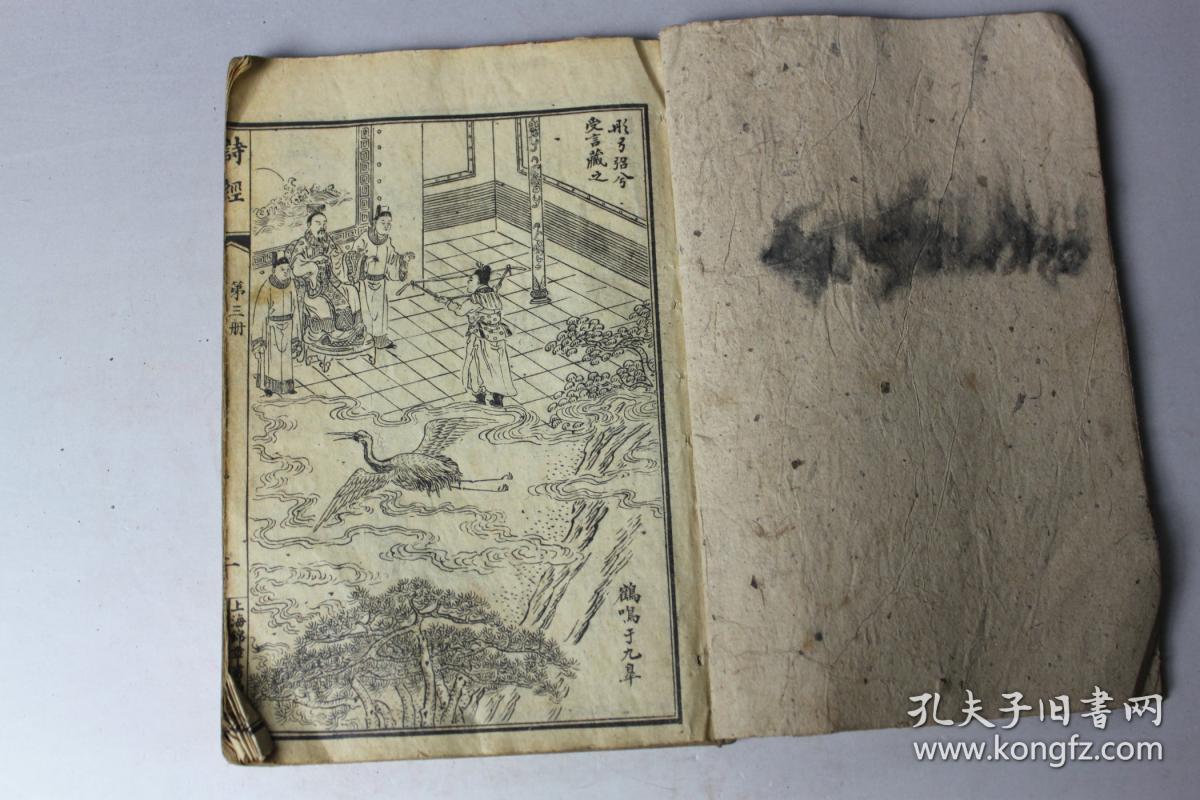 彤弓弨兮
受言藏之
鶴鳴于九皐
詩經
第三册
一
上海錦章
孔夫子旧書网
www.kongfz.com